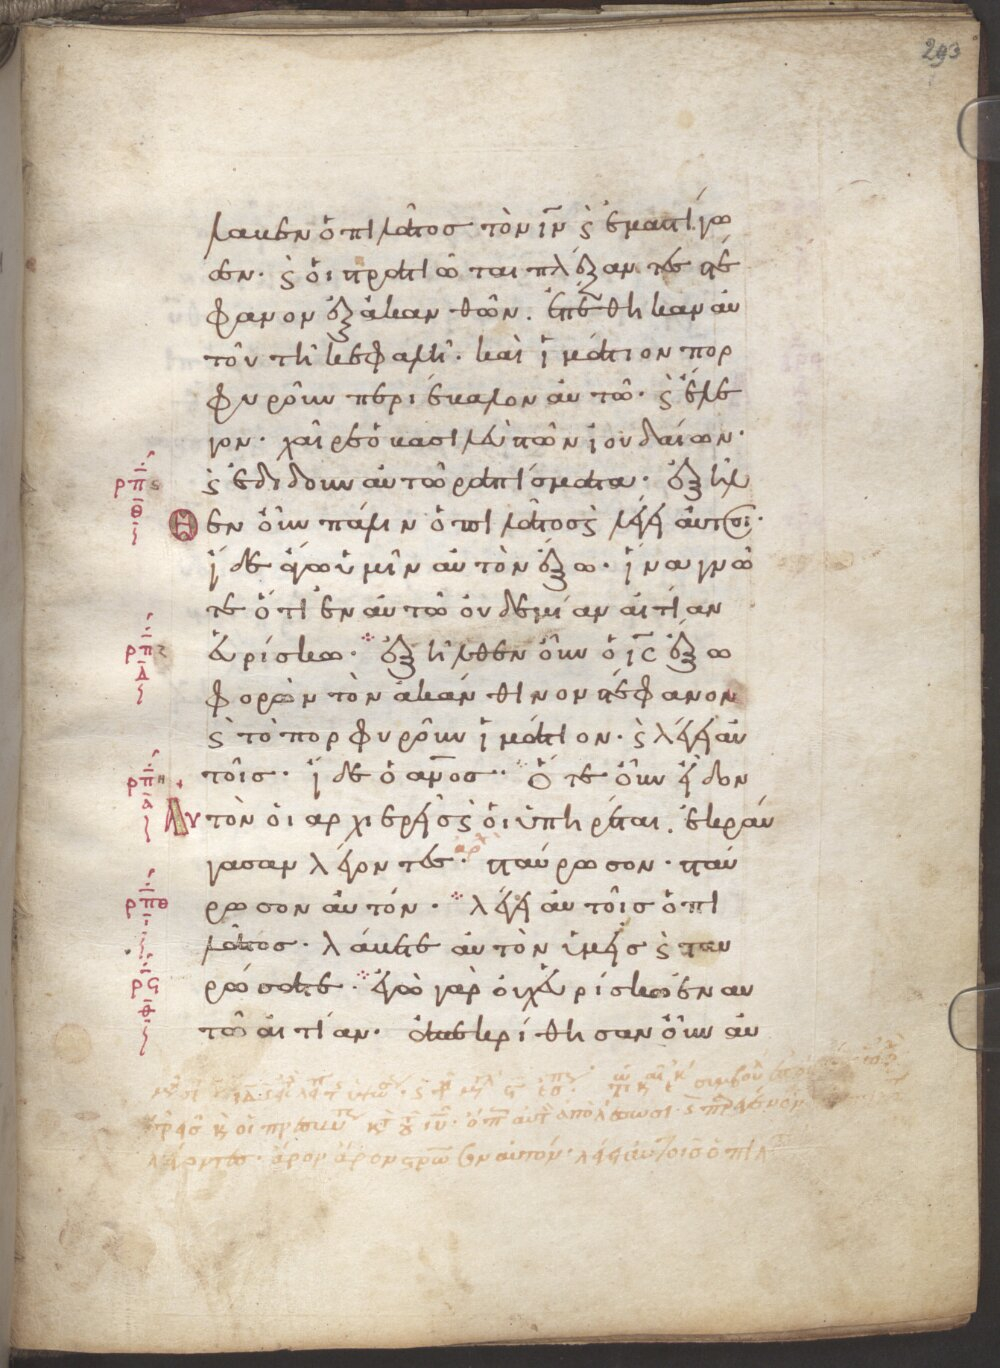 293
λαβεν ὁ πιλᾶτος τὸν ιν̅ ϛ ἐμαστίγω
σεν· ϛ οἱ στρατιῶται πλέξαντες στέ
φανον ἐξ ἀκανθῶν. ἐπέθηκαν αὐ
τοῦ τῆ κεφαλῆ· καὶ ἱμάτιον πορ
φυροῦν περιέβαλον αὐτῶ· ϛ ἔλε
γον· χαῖρε ὁ βασιλεὺς τῶν ἰουδαίων·
ϛ ἐδίδουν αὐτῶ ραπίσματα· ἐξῆλ
ρπϛ
θ
θεν οὖν πάλιν ὁ πιλᾶτος ϛ λέγει αὐτοῖς·
ἴδε ἄγω ὑμῖν αὐτὸν ἔξω· ἵνα γνῶ
τε ὅτι ἐν αὐτῶ οὐδεμίαν αἰτίαν
εὑρίσκω· ἐξῆλθεν οὖν ὁ ις̅ ἔξω
ρπζ
δ
φορῶν τὸν ἀκάνθινον στέφανον
ϛ τὸ πορφυροῦν ἱμάτιον· ϛ λέγει αὐ
τοῖς· ἴδε ὁ ανος· Ὅτε οὖν εἶδον
ρπη
α
αὐτὸν οἱ αρχιερεῖς ϛ οἱ ὑπηρέται. ἐκραύ
γασαν λέγοντες· σταύρωσον· σταύ
ρωσον αὐτόν· λέγει αὐτοῖς ὁ πι
ρπθ
ι
λᾶτος· λάβετε αὐτὸν ὑμεῖς ϛ σταυ
ρώσατε· ἐγὼ γὰρ οὐχ εὑρίσκω ἐν αυ
ρϟ
θ
τῶ αἰτίαν· ἀπεκρίθησαν οὖν αὐ
λέγοντες· ἆρον ἆρον σρω̅σον αὐτόν· λέγει αὐτοῖς ὁ πιλ